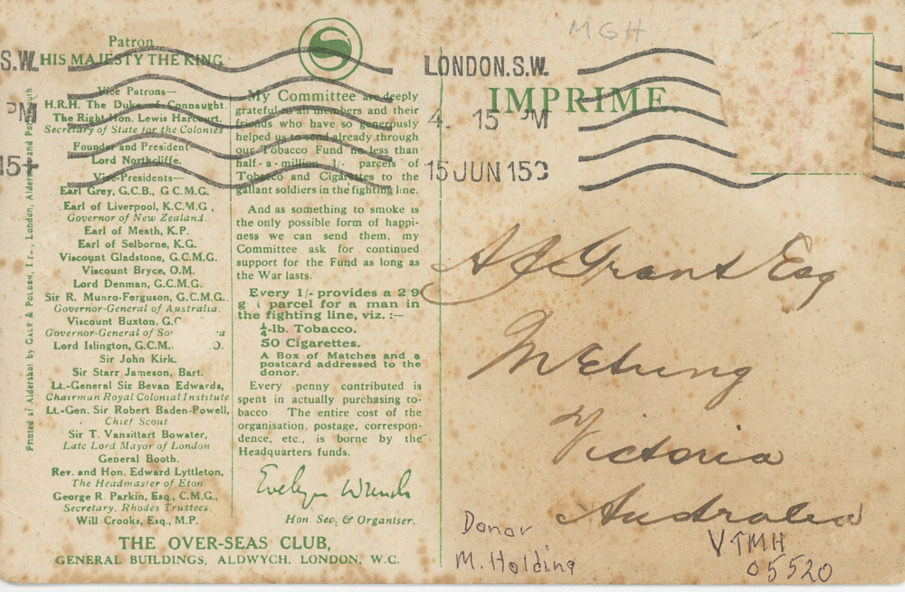 MGH
Patron
HIS MAJESTY THE KING
Vice Patrons—
H.R.H. The Duke of Connaught.
The Right Hon. Lewis Harcourt.
Secretary of State for the Colonies
Founder and President
Lord Northcliffe.
Vice-Presidents—
Earl Grey, G.C.B., G C.M.G.
Earl of Liverpool, K.C.M.G.
Governor of New Zealand.
Earl of Meath, K.P.
Earl of Selborne, K.G.
Viscount Gladstone, G.C.M.G.
Viscount Bryce, O.M.
Lord Denman, G.C.M.G.
Sir R. Munro-Ferguson, G.C.M.G.
Governor-General of Australia.
Viscount Buxton, G.C
Governor-General of So
Lord Islington, G.C.M.
Sir John Kirk.
Sir Starr Jameson, Bart.
Lt.-General Sir Bevan Edwards,
Chairman Royal Colonial Institute
Lt.-Gen. Sir Robert Baden-Powell,
Chief Scout
Sir T. Vansittart Bowater,
Late Lord Mayor of London
General Booth.
Rev. and Hon. Edward Lyttleton,
The Headmaster of Eton.
George R. Parkin, Esq., C.M.G.,
Secretary, Rhodes Trustees.
Will Crooks, Esq., M.P.
My Committee are deeply
grateful to all members and their
friends who have so generously
helped us to send already through
our Tobacco Fund no less than
half-a-million 1/- parcels of
Tobacco and Cigarettes to the
gallant soldiers in the fighting line.
And as something to smoke is
the only possible form of happi-
ness we can send them, my
Committee ask for continued
support for the Fund as long as
the War lasts.
Every 1/- provides a 2 9
parcel for a man in
the fighting line, viz. :—
¼-lb. Tobacco.
50 Cigarettes.
A Box of Matches and a
postcard addressed to the
donor.
Every penny contributed is
spent in actually purchasing to-
bacco The entire cost of the
organisation, postage, correspon-
dence, etc., is borne by the
Headquarters funds.
Evelyn Wrench
Hon. Sec, & Organiser.
THE OVER-SEAS CLUB,
GENERAL BUILDINGS, ALDWYCH. LONDON, W.C.
Printed at Aldershot by Gale & Polden, Ltd., London, Aldershot and Portsmouth
S.W.
PM
15
LONDON.S.W.
IMPRIME
4. 15 PM
15 JUN 15
A J Grant Esq
Metung
Victoria
Australia
Donor
M. Holding
VTMH
05520